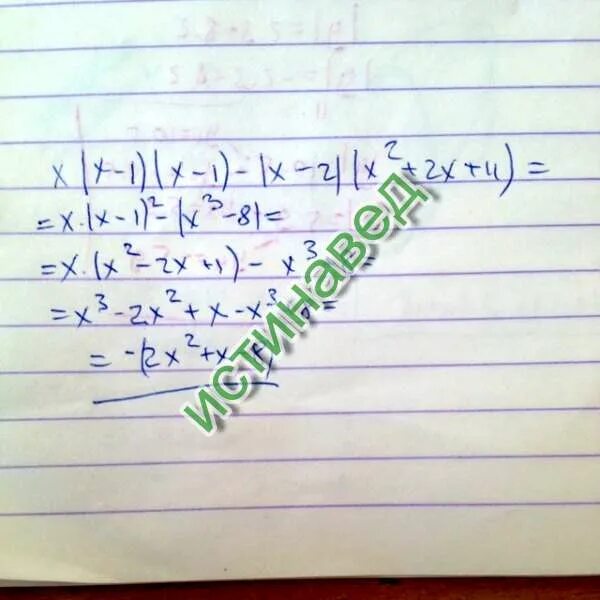 x(x-1)(x-1)-(x-2)(x²+2x+4)=
=x·(x-1)²-(x³-8)=
=x·(x²-2x+1)-x³ =
=x³-2x²+x-x³ =
=-(2x²+x
ИСТИНАВЕД